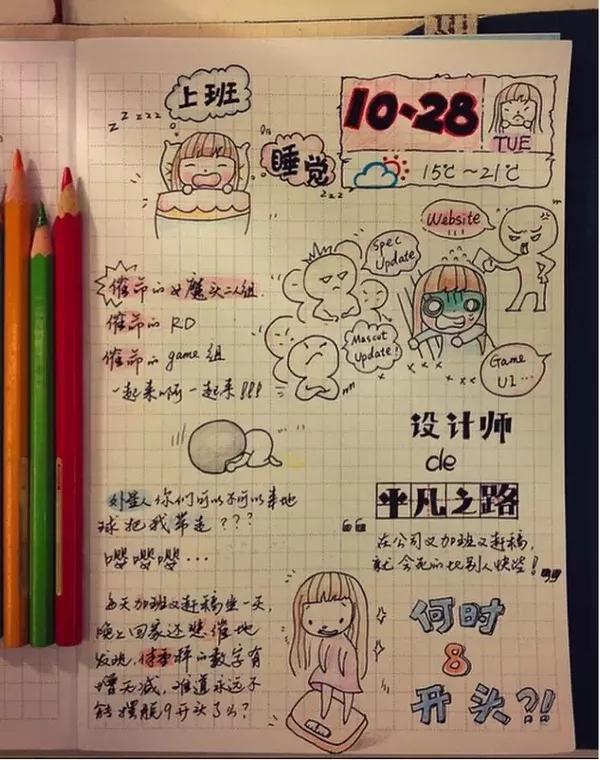 上班
zzzzz
睡觉
zzz
10·28
TUE
15℃~21℃
Website
Spec
Update
Mascot
Update!
Game
UI...
催命的女魔头二人组.
催命的 RD
催命的 game组
一起来啊一起来!!!
设计师
de
平凡之路
外星人你们可以不可以来地
球把我带走???
嘤嘤嘤...
在公司又加班又赶稿,
就会死的比别人快些!
每天加班又赶稿坐一天,
晚上回家还悲催地
发现,体重秤的数字有
增无减,难道永远不
能摆脱9开头了么?
何时
8
开头?!